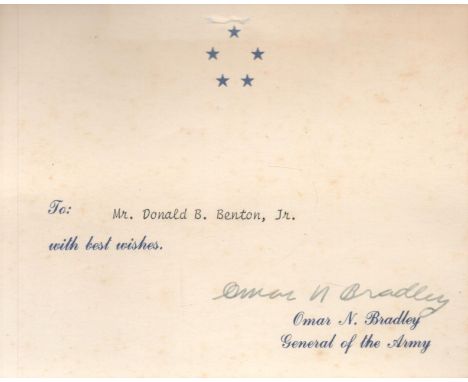 To: Mr. Donald B. Benton, Jr.
with best wishes.
Omar N Bradley
Omar N. Bradley
General of the Army